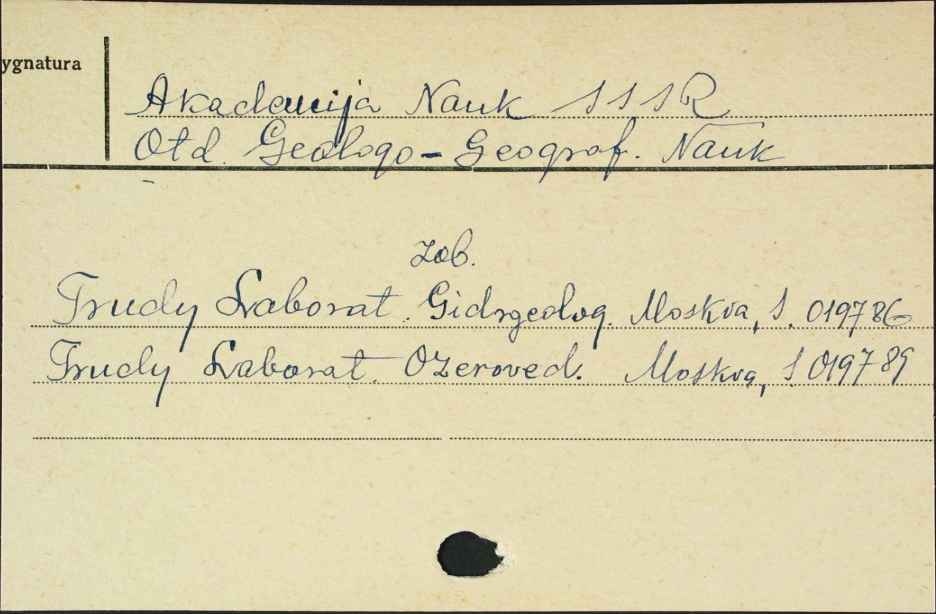 ygnatura
Akademija Nauk SSSR
Otd. Geologo-Geograf. Nauk
zob.
Trudy Laborat. Gidrgeolog. Moskva, S. 019786
Trudy Laborat. Ozeroved. Moskva, S. 019789